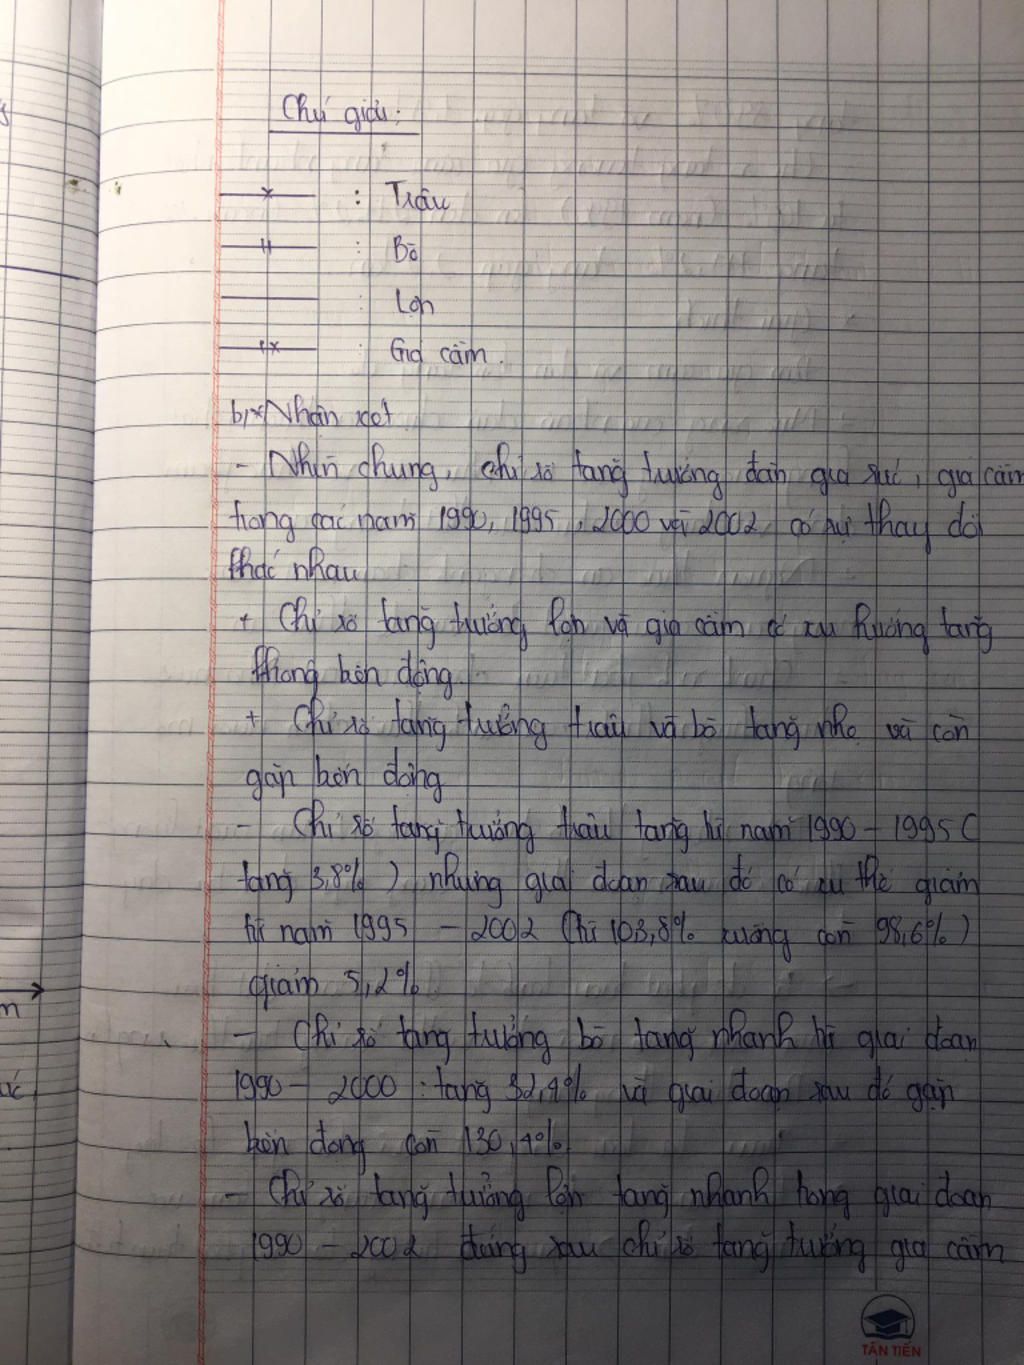 Chú giải:
: Trâu
: Bò
: Lợn
: Gia cầm.
b,* Nhận xét
- Nhìn chung, chỉ số tăng trưởng đàn gia súc, gia cầm
trong các năm 1990, 1995, 2000 và 2002 có sự thay đổi
khác nhau
+ Chỉ số tăng trưởng lợn và gia cầm có xu hướng tăng
không biến động
+ Chỉ số tăng trưởng trâu và bò tăng nhẹ và còn
gặp biến động
- Chỉ số tăng trưởng trâu tăng từ năm 1990 - 1995 (
tăng 3,8% ) nhưng giai đoạn sau đó có xu thế giảm
từ năm 1995 - 2002 (từ 103,8% xuống còn 98,6%)
giảm 5,2%
- Chỉ số tăng trưởng bò tăng nhanh từ giai đoạn
1990 - 2000 : tăng 32,4% và giai đoạn sau đó gặp
biến động còn 130,4%
- Chỉ số tăng trưởng lợn tăng nhanh trong giai đoạn
1990 - 2002 đứng sau chỉ số tăng trưởng gia cầm
TÂN TIẾN